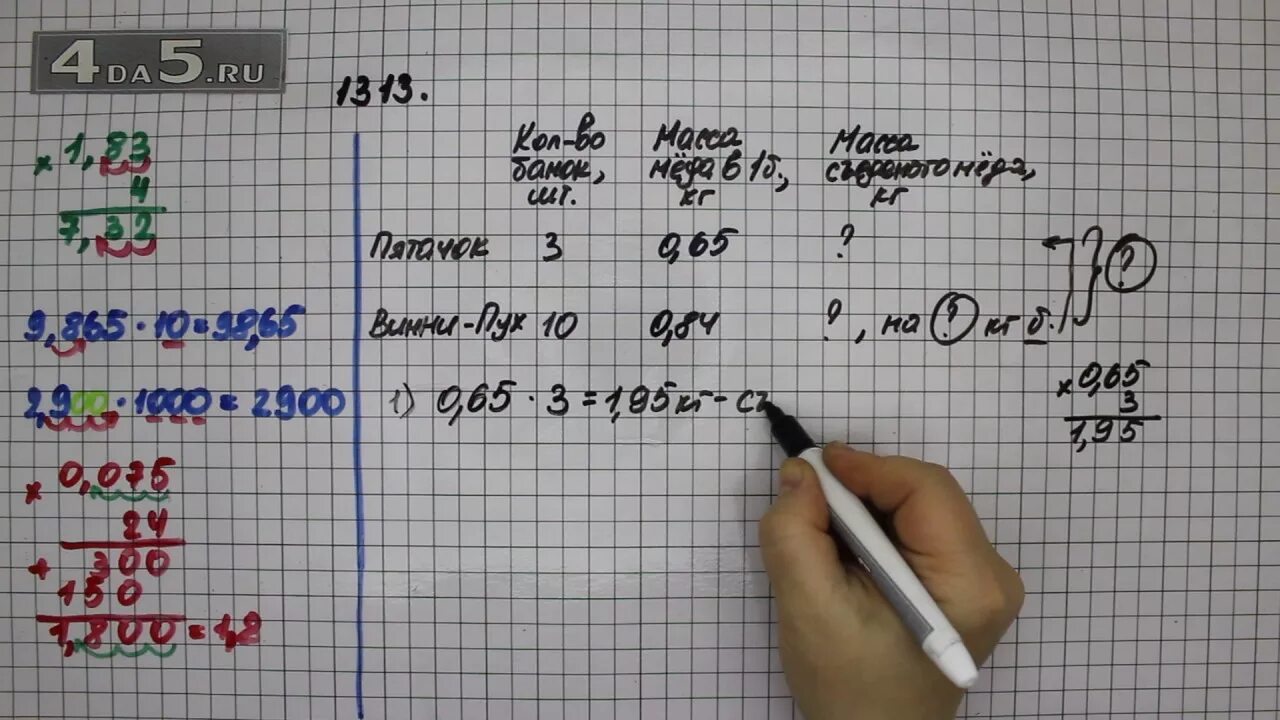 4DA5.RU
1313.
× 1,83
4
7,32
9,865 · 10 = 98,65
2,900 · 1000 = 2900
× 0,075
24
+ 300
150
1,800 = 1,8
Кол-во банок, шт.
Масса мёда в 1б., кг
Масса съеденого мёда, кг
Пятачок 3 0,65 ?
Винни-Пух 10 0,84 ?, на ? кг б.
?
1) 0,65 · 3 = 1,95 кг - съ
× 0,65
3
1,95